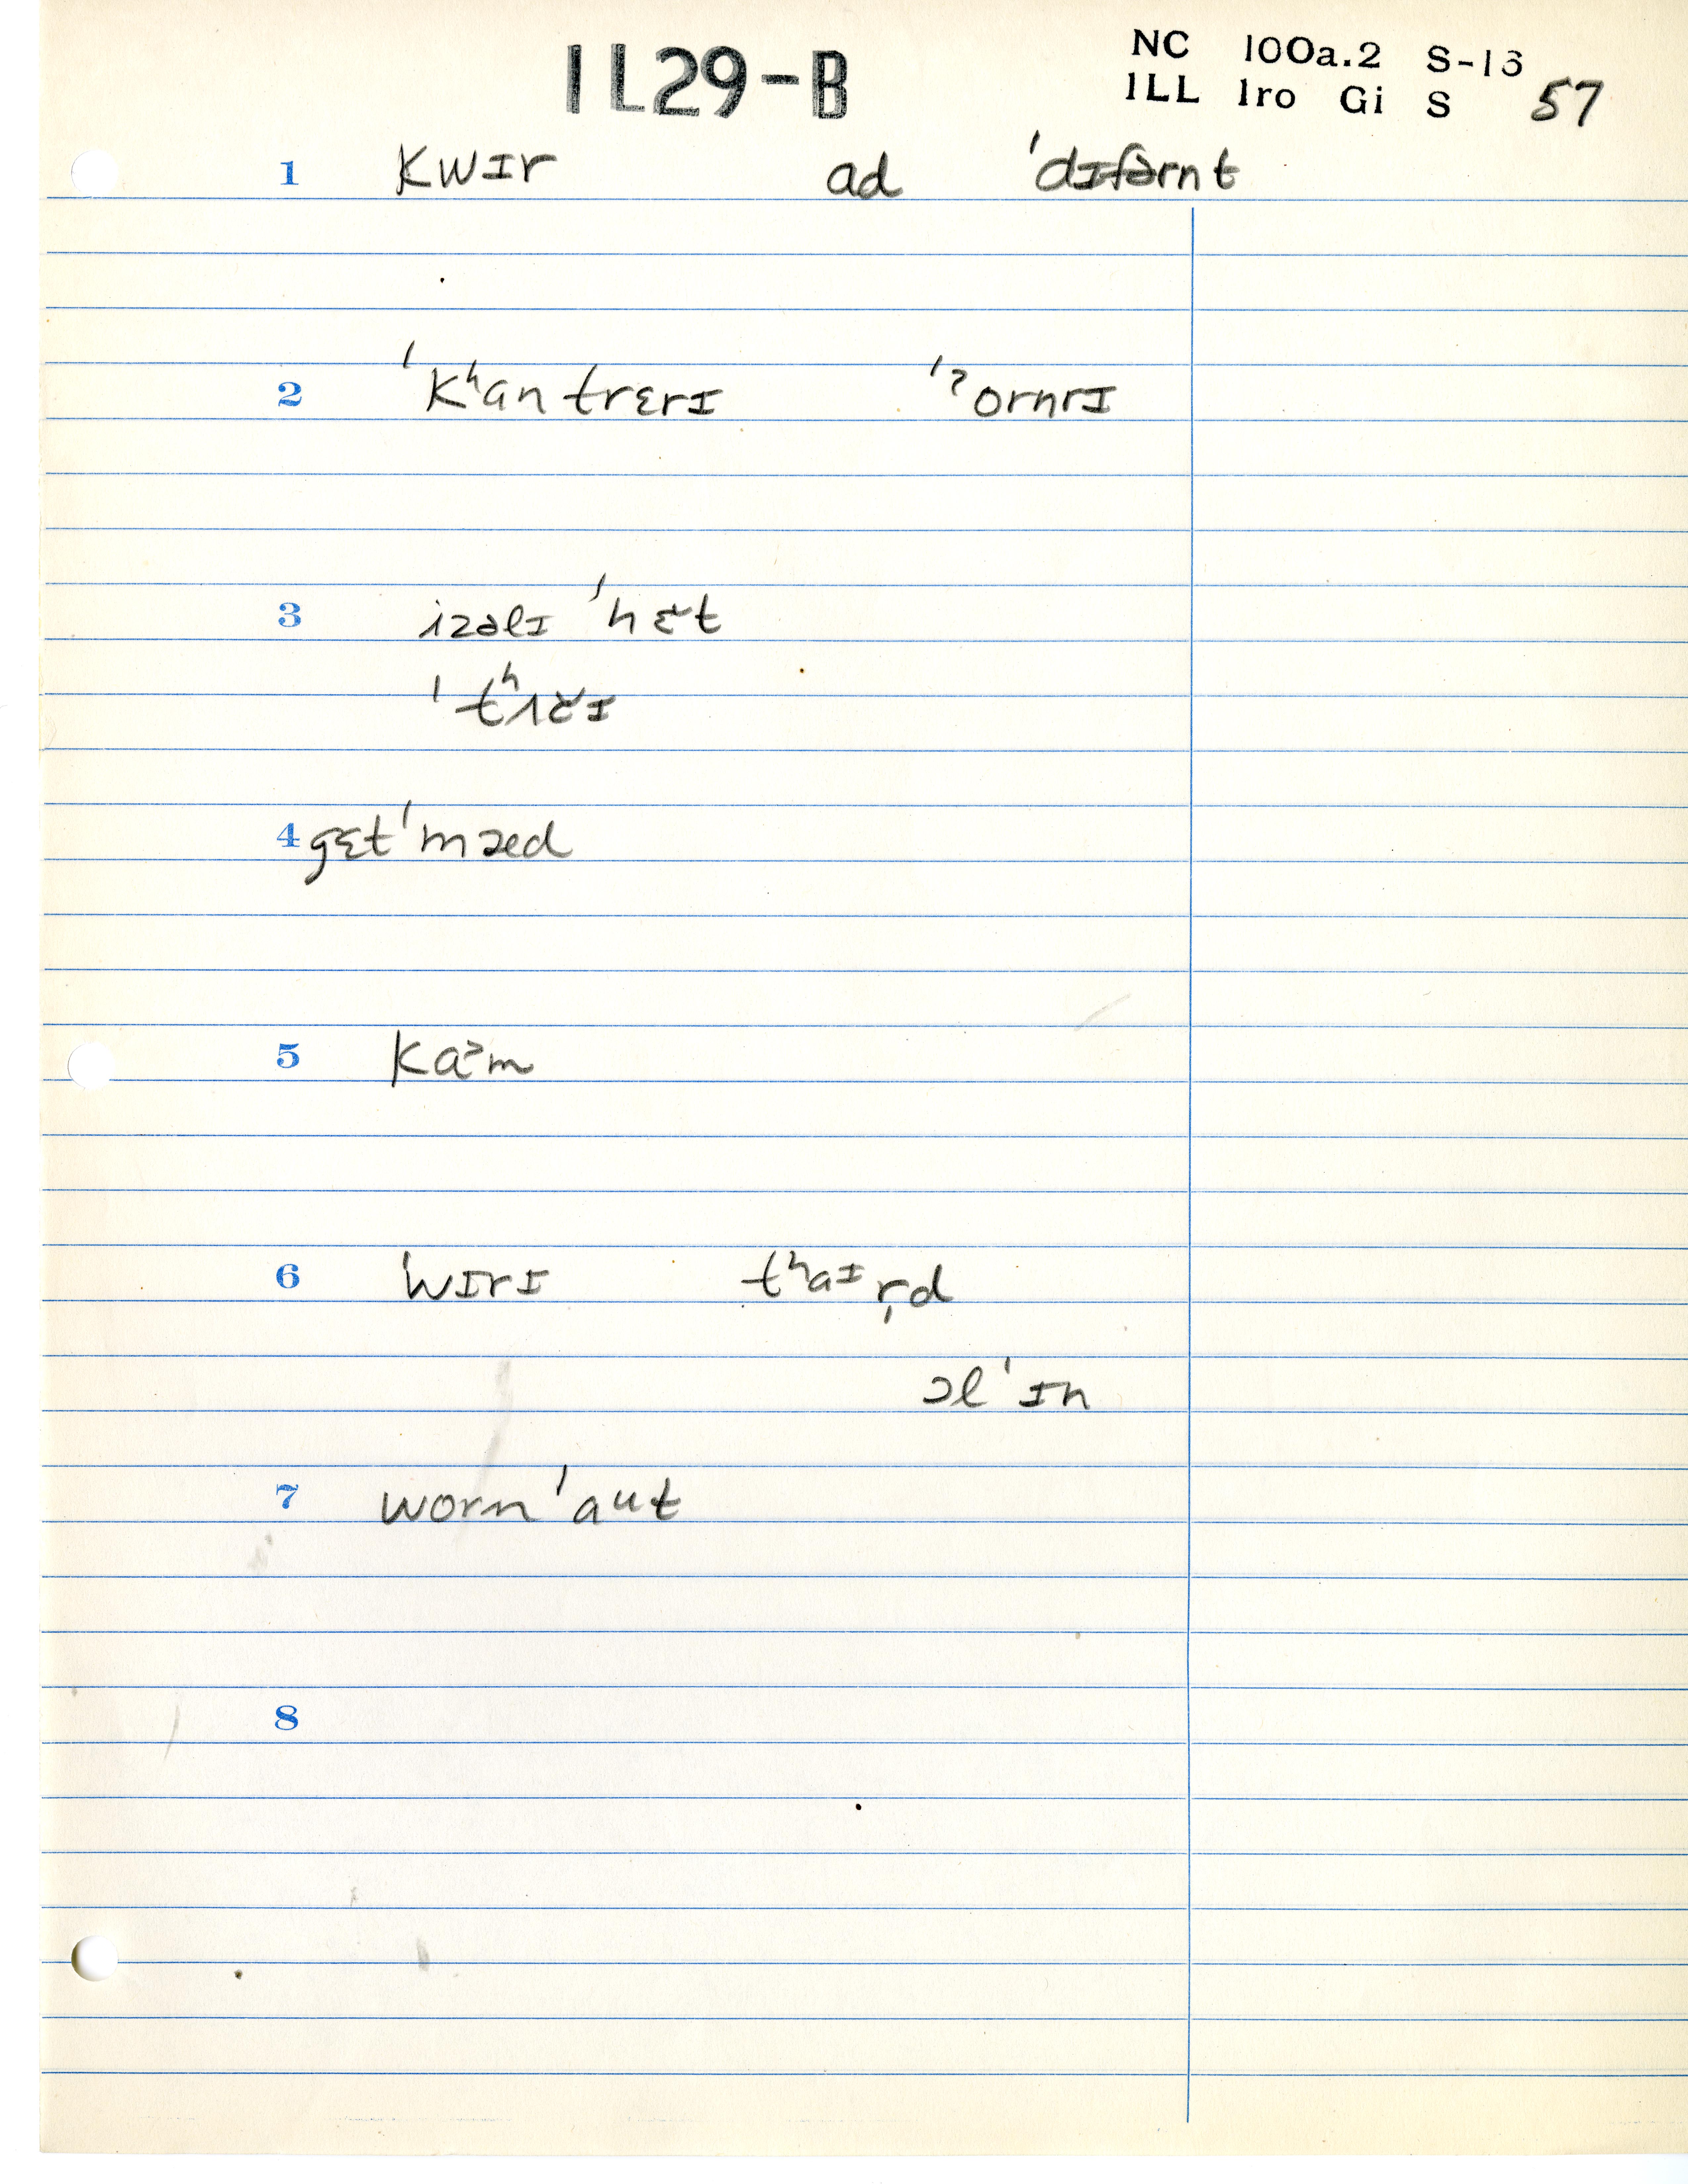 IL29-B
NC 100a.2 S-13
ILL Iro Gi S 57
1 kwɪr ad 'dɪfərnt
2 'kʰantrɛrɪ 'ˀornrɪ
3 izəlɪ 'hɛt
'tʰʌčɪ
4 gɛt 'mæd
5 kaᵊm
6 'wɪrɪ tʰaɪr̩d
ɔl 'ɪn
7 worn 'aut
8